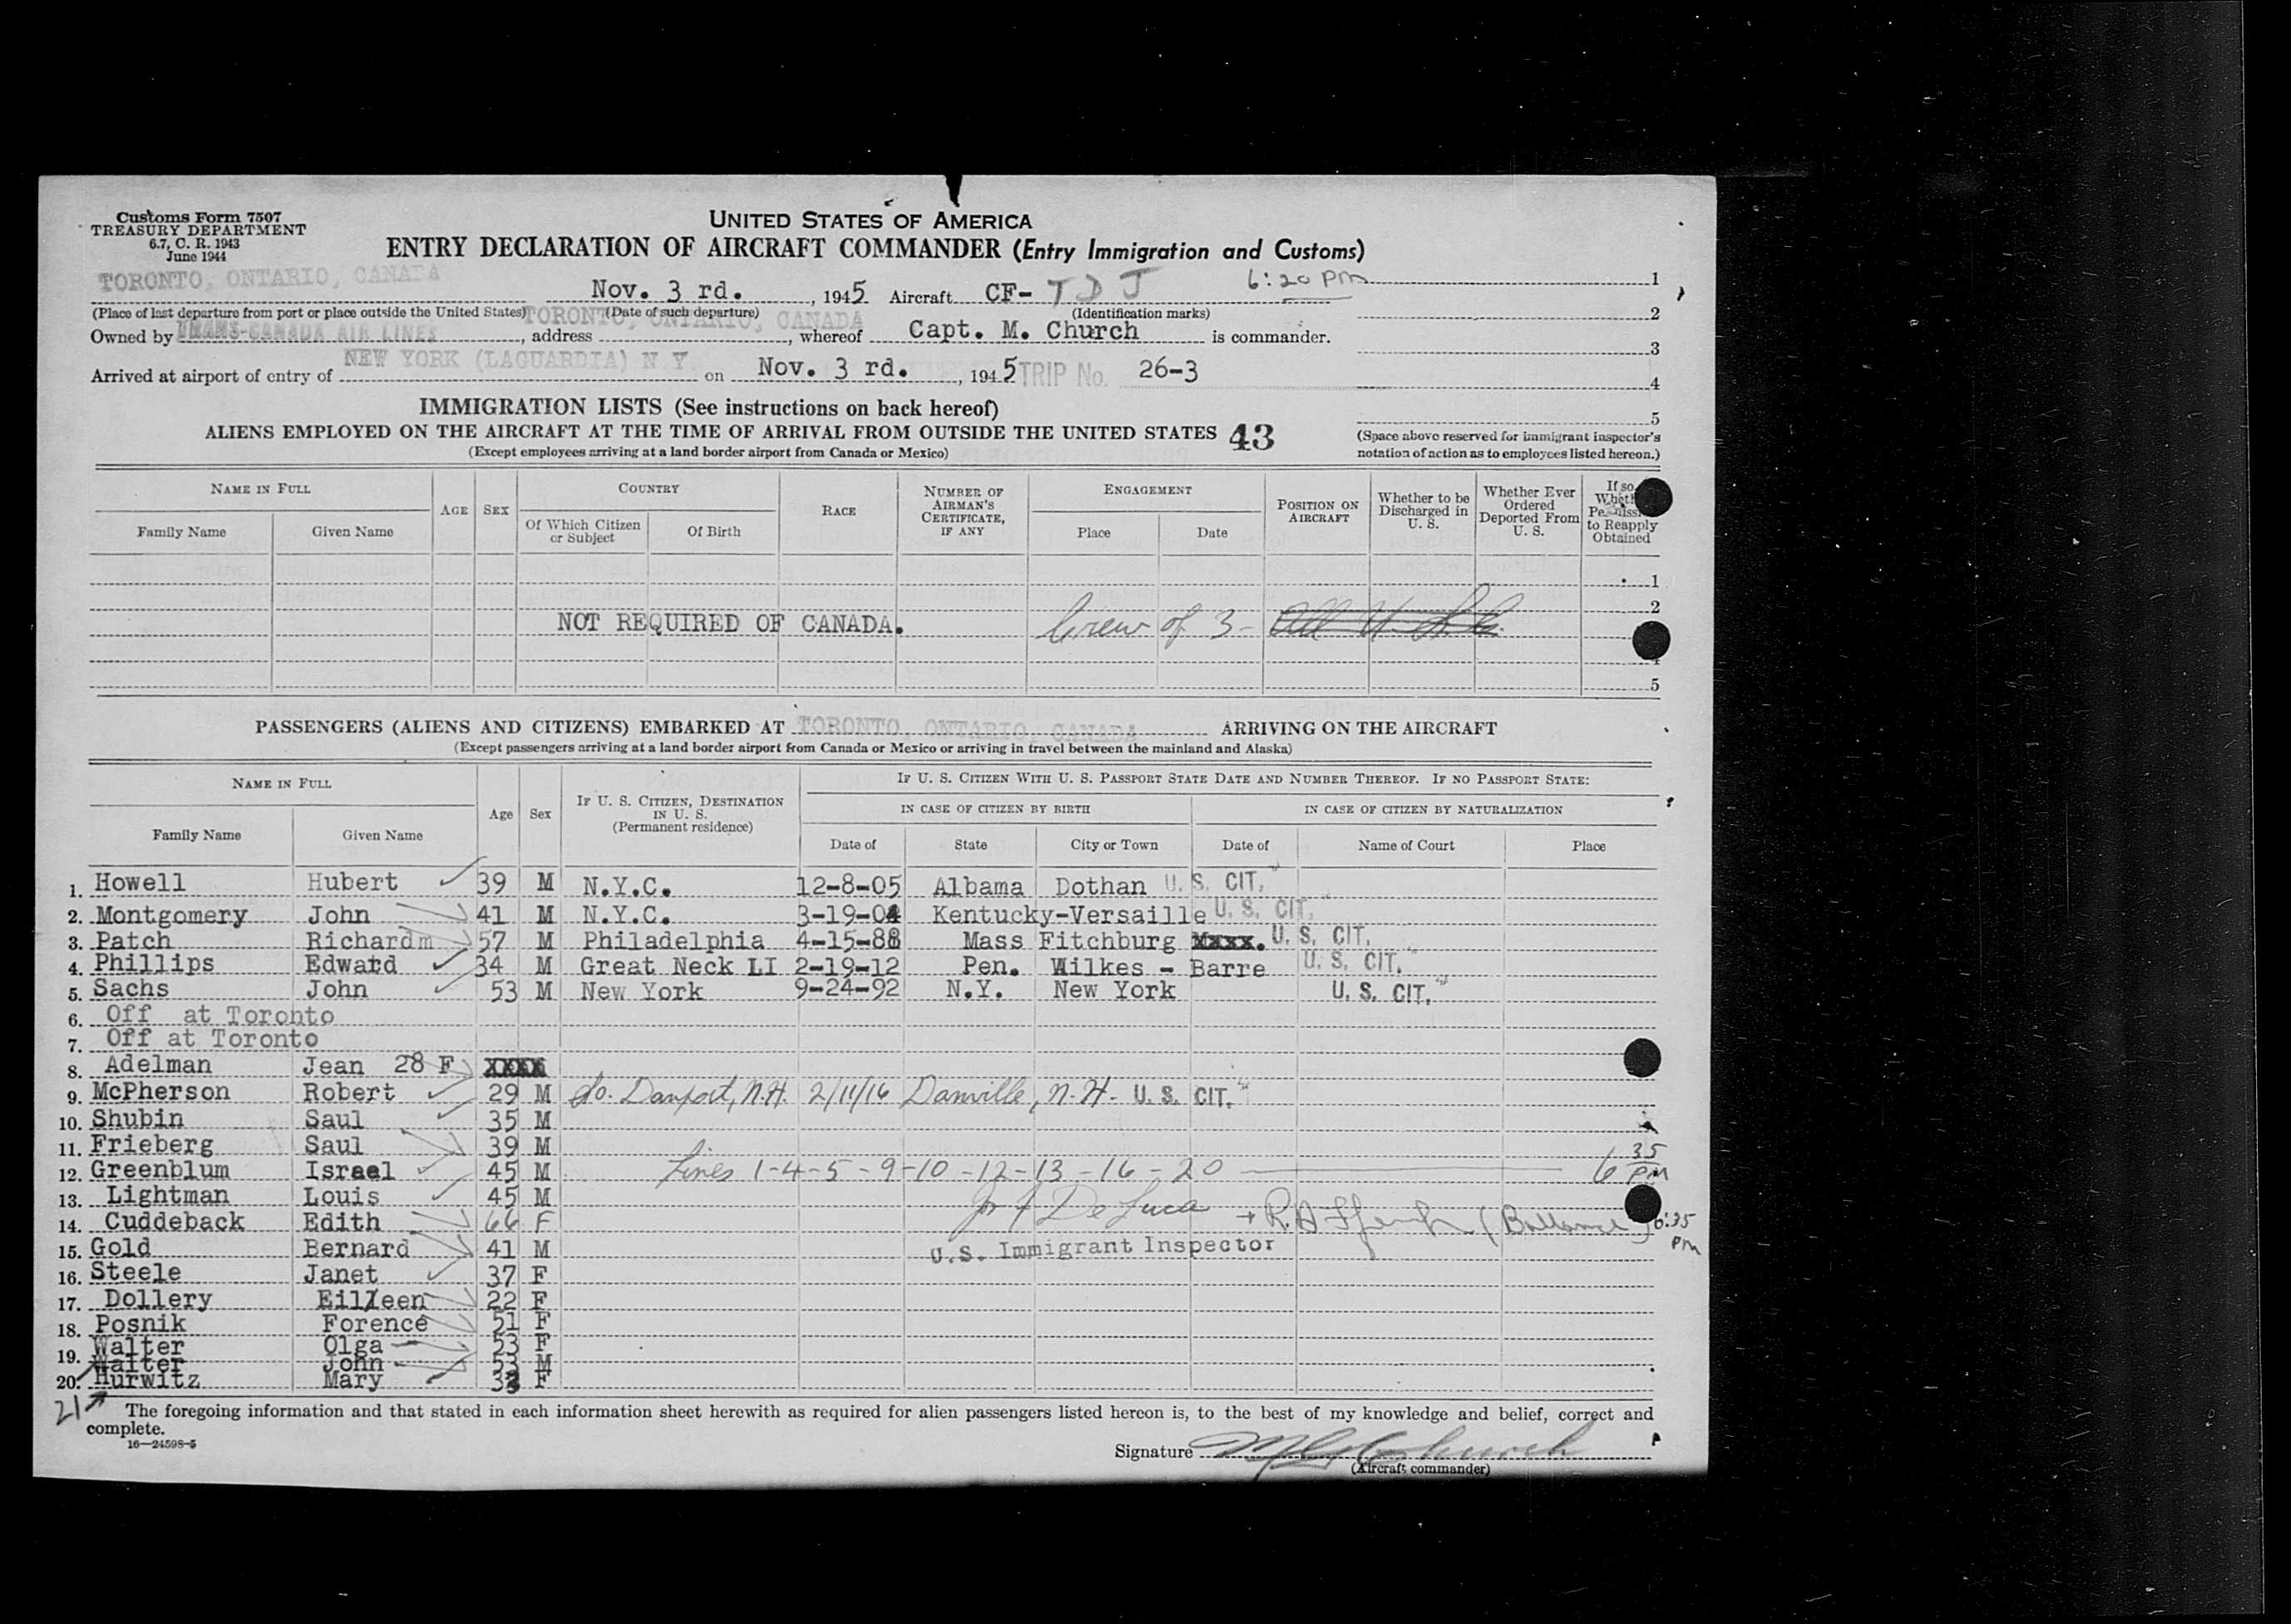 Customs Form 7507
TREASURY DEPARTMENT
6.7, C. R. 1943
June 1944
UNITED STATES OF AMERICA
ENTRY DECLARATION OF AIRCRAFT COMMANDER (Entry Immigration and Customs)
TORONTO, ONTARIO, CANADA Nov. 3 rd., 1945 Aircraft CF- T D J 6:20 PM 1
(Place of last departure from port or place outside the United States) (Date of such departure) (Identification marks) 2
Owned by TRANS-CANADA AIR LINES, address TORONTO, ONTARIO, CANADA, whereof Capt. M. Church is commander. 3
Arrived at airport of entry of NEW YORK (LAGUARDIA) N.Y. on Nov. 3 rd., 1945 TRIP No. 26-3 4
IMMIGRATION LISTS (See instructions on back hereof) 5
ALIENS EMPLOYED ON THE AIRCRAFT AT THE TIME OF ARRIVAL FROM OUTSIDE THE UNITED STATES 43
(Except employees arriving at a land border airport from Canada or Mexico)
(Space above reserved for immigrant inspector's
notation of action as to employees listed hereon.)
NAME IN FULL
Family Name Given Name AGE SEX
COUNTRY
Of Which Citizen or Subject Of Birth RACE
NUMBER OF AIRMAN'S CERTIFICATE, IF ANY
ENGAGEMENT
Place Date
POSITION ON AIRCRAFT
Whether to be Discharged in U. S.
Whether Ever Ordered Deported From U. S.
If so, to Reapply Obtained
1
2
NOT REQUIRED OF CANADA. Crew of 3 -
4
5
PASSENGERS (ALIENS AND CITIZENS) EMBARKED AT TORONTO, ONTARIO, CANADA ARRIVING ON THE AIRCRAFT
(Except passengers arriving at a land border airport from Canada or Mexico or arriving in travel between the mainland and Alaska)
NAME IN FULL
Family Name Given Name Age Sex
IF U. S. CITIZEN, DESTINATION IN U. S. (Permanent residence)
IF U. S. CITIZEN WITH U. S. PASSPORT STATE DATE AND NUMBER THEREOF. IF NO PASSPORT STATE:
IN CASE OF CITIZEN BY BIRTH IN CASE OF CITIZEN BY NATURALIZATION
Date of State City or Town Date of Name of Court Place
1. Howell Hubert 39 M N.Y.C. 12-8-05 Albama Dothan U. S. CIT.
2. Montgomery John 41 M N.Y.C. 3-19-04 Kentucky-Versaille U. S. CIT.
3. Patch Richard m 57 M Philadelphia 4-15-88 Mass Fitchburg Mxxx. U. S. CIT.
4. Phillips Edward 34 M Great Neck LI 2-19-12 Pen. Wilkes - Barre U. S. CIT.
5. Sachs John 53 M New York 9-24-92 N.Y. New York U. S. CIT.
6. Off at Toronto
7. Off at Toronto
8. Adelman Jean 28 F XXXX
9. McPherson Robert 29 M So. Danport, N.H. 2/11/16 Danville, N.H. U. S. CIT.
10. Shubin Saul 35 M
11. Frieberg Saul 39 M
12. Greenblum Israel 45 M Lines 1-4-5-9-10-12-13-16-20 6 35 PM
13. Lightman Louis 45 M
14. Cuddeback Edith 66 F De Luca 6:35 PM
15. Gold Bernard 41 M U.S. Immigrant Inspector
16. Steele Janet 37 F
17. Dollery Eilleen 22 F
18. Posnik Forence 51 F
19. Walter Olga 53 F
Walter John 53 M
20. Hurwitz Mary 33 F
21
The foregoing information and that stated in each information sheet herewith as required for alien passengers listed hereon is, to the best of my knowledge and belief, correct and
complete.
16—24598-5
Signature M Church
(Aircraft commander)